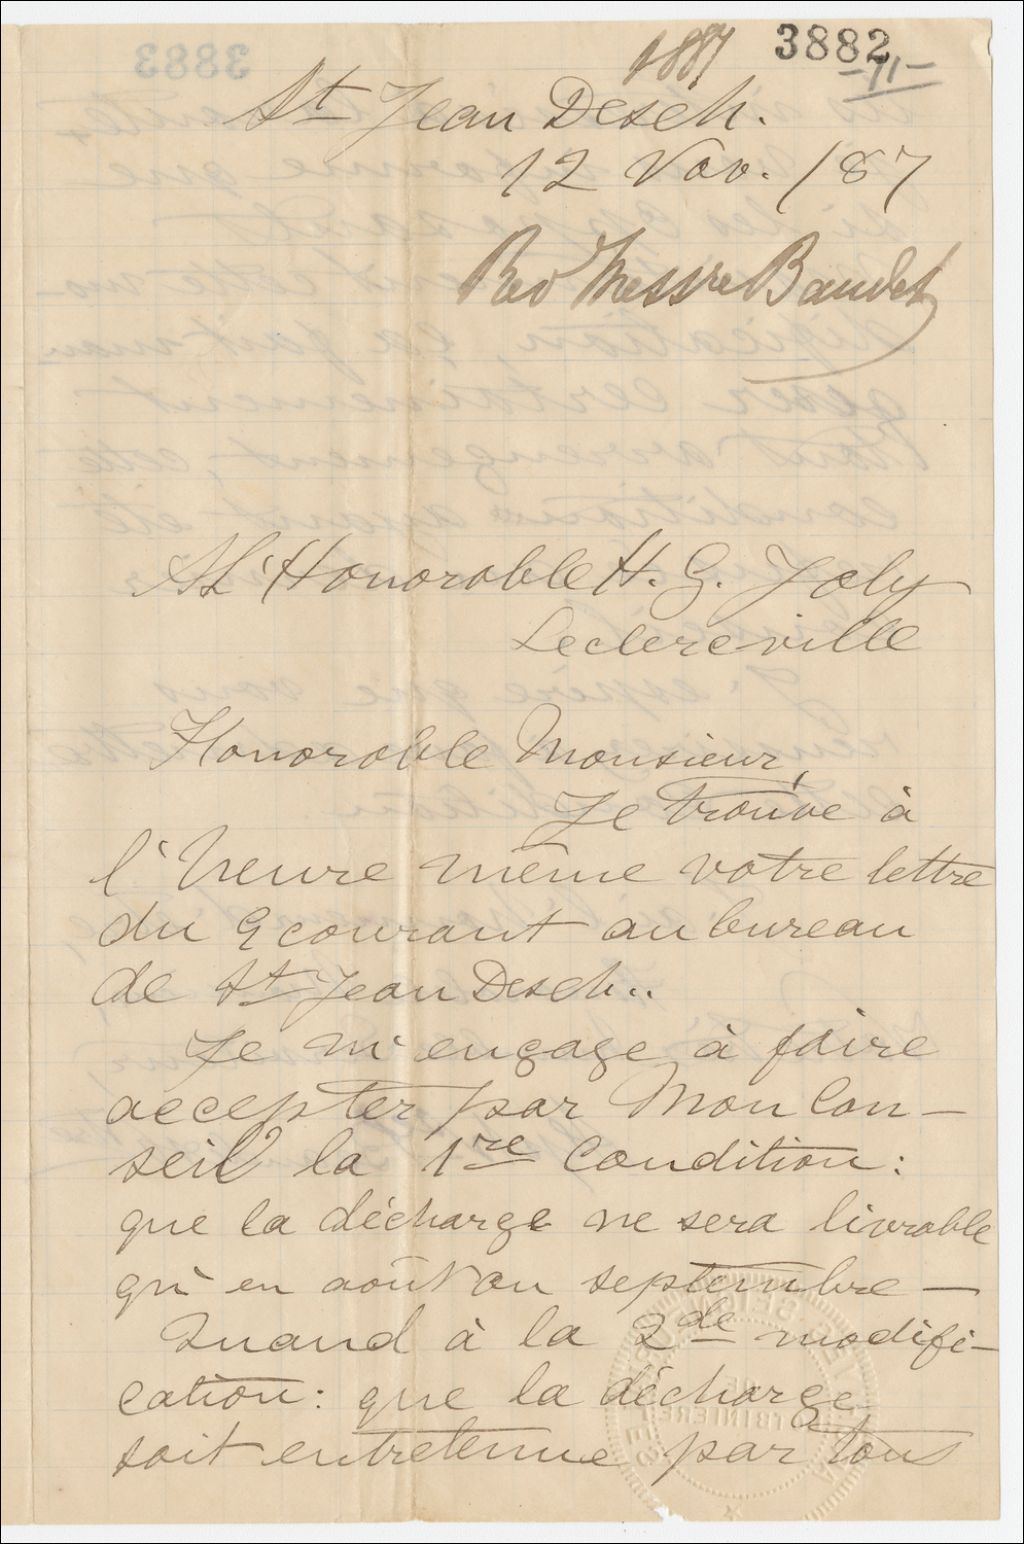 1887 3882
-11-
St Jean Desch.
12 Nov. /87
Rev Messre Baudet
A L'Honorable H. G. Joly
Leclereville
Honorable Monsieur,
Je trouve à
l'heure même votre lettre
du 9 courant au bureau
de St Jean Desch..
Je m'engage à faire
accepter par Mon Con-
seil la 1re Condition:
que la décharge ne sera livrable
qu'en août ou septembre —
Quand à la 2de modifi-
cation: que la décharge
soit entretenue par tous